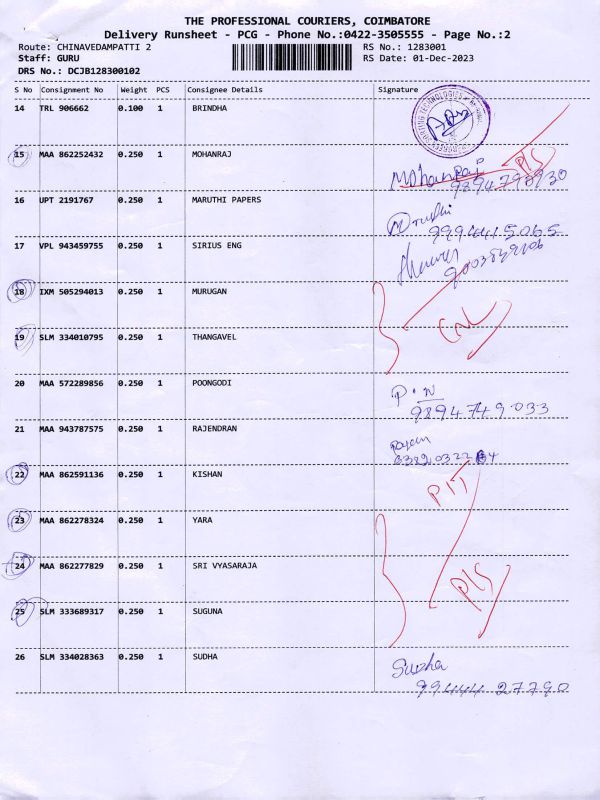 THE PROFESSIONAL COURIERS, COIMBATORE
Delivery Runsheet - PCG - Phone No.:0422-3505555 - Page No.:2
Route: CHINAVEDAMPATTI 2 RS No.: 1283001
Staff: GURU RS Date: 01-Dec-2023
DRS No.: DCJB128300102
S No Consignment No Weight PCS Consignee Details Signature
14 TRL 906662 0.100 1 BRINDHA
15 MAA 862252432 0.250 1 MOHANRAJ
Mohanraj P/S
16 UPT 2191767 0.250 1 MARUTHI PAPERS
17 VPL 943459755 0.250 1 SIRIUS ENG
18 IXM 505294013 0.250 1 MURUGAN
19 SLM 334010795 0.250 1 THANGAVEL
20 MAA 572289856 0.250 1 POONGODI P.N
9894749033
21 MAA 943787575 0.250 1 RAJENDRAN
22 MAA 862591136 0.250 1 KISHAN
23 MAA 862278324 0.250 1 YARA
24 MAA 862277829 0.250 1 SRI VYASARAJA
P/S
25 SLM 333689317 0.250 1 SUGUNA
26 SLM 334028363 0.250 1 SUDHA Sudha
99444 27790